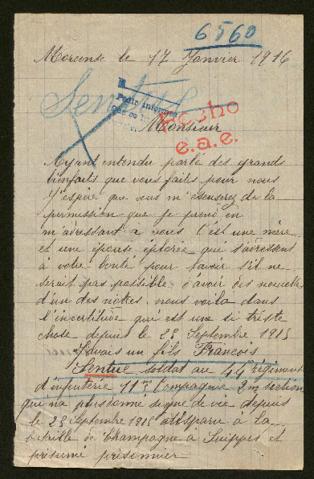 6560
Morcenx le 17 Janvier 1916
Hecho
e.a.e.
Monsieur
Ayant entendu parlé des grands
bienfaits que vous faites pour nous
J'espère que vous m'excuserez de la
permission que je prend en
m'adressant a vous C'est une mère
et une épouse éplorée qui s'adressent
à votre bonté pour savoir s'il ne
serait pas possible d'avoir des nouvelles
d'un des nôtres. nous voila dans
l'incertitude qui est une si triste
chose depuis le 25 Septembre 1915
J'avais un fils François
Sentuc soldat au 44 régiment
d'infanterie 11e Compagnie 2me section
qui na plus donné signe de vie depuis
le 25 Septembre 1915 disparu à la
bataille de Champagne a Suippes et
présumé prisonnier